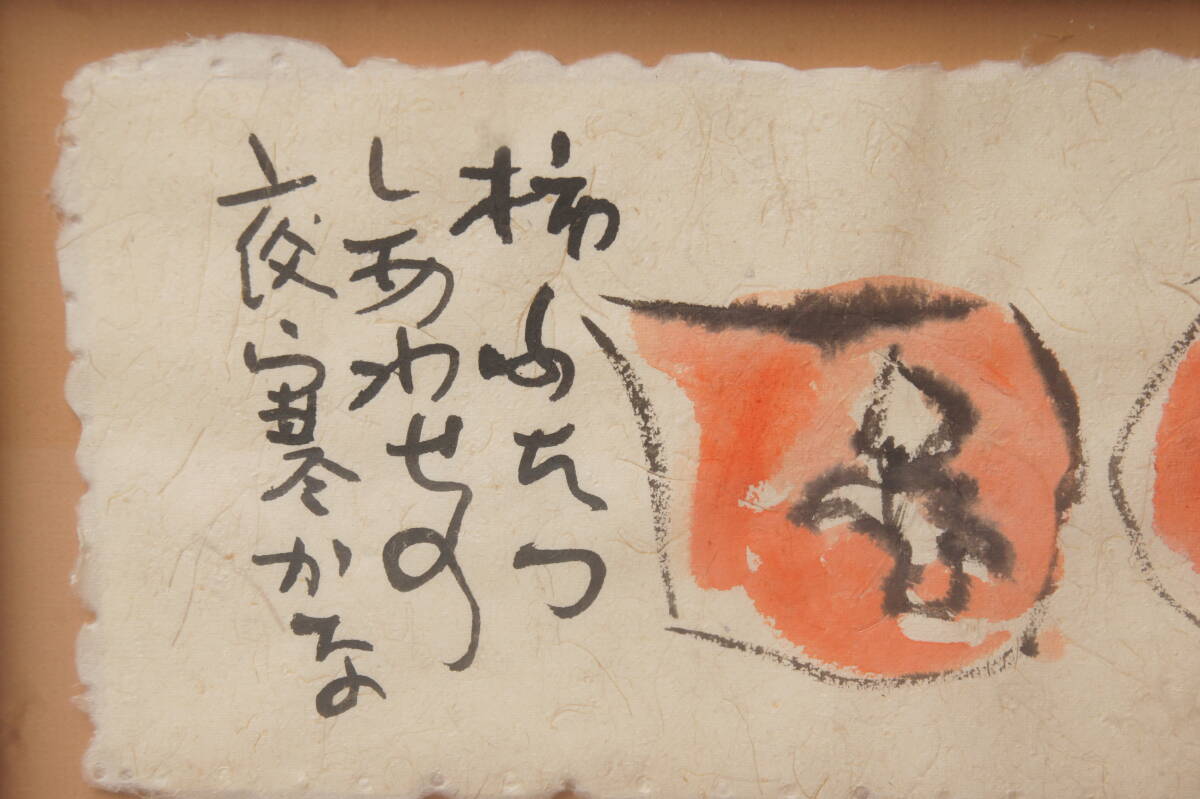 柿ふたつ
しあわせの
夜寒かな